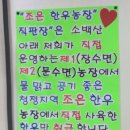 "조은 한우농장"
직판장"은 소백산
아래 저희가 직접
운영하는제1(장수면)
제2(문수면)농장에서
물 맑고 공기 좋은
청정지역 조은 한우
농장에서 직접 사육한
한우만 취급합니다